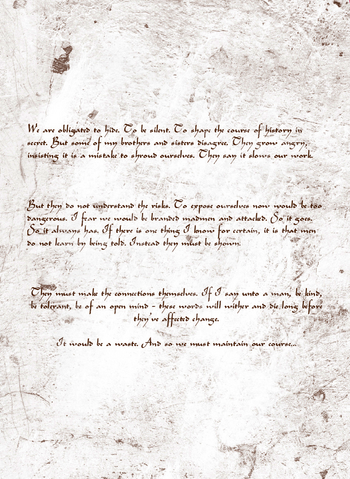 We are obligated to hide. To be silent. To shape the course of history in
secret. But some of my brothers and sisters disagree. They grow angry,
insisting it is a mistake to shroud ourselves. They say it slows our work.
But they do not understand the risks. To expose ourselves now would be too
dangerous. I fear we would be branded madmen and attacked. So it goes.
So it always has. If there is one thing I know for certain, it is that men
do not learn by being told. Instead they must be shown.
They must make the connections themselves. If I say unto a man, be kind,
be tolerant, be of an open mind - these words will wither and die long before
they've affected change.
It would be a waste. And so we must maintain our course...